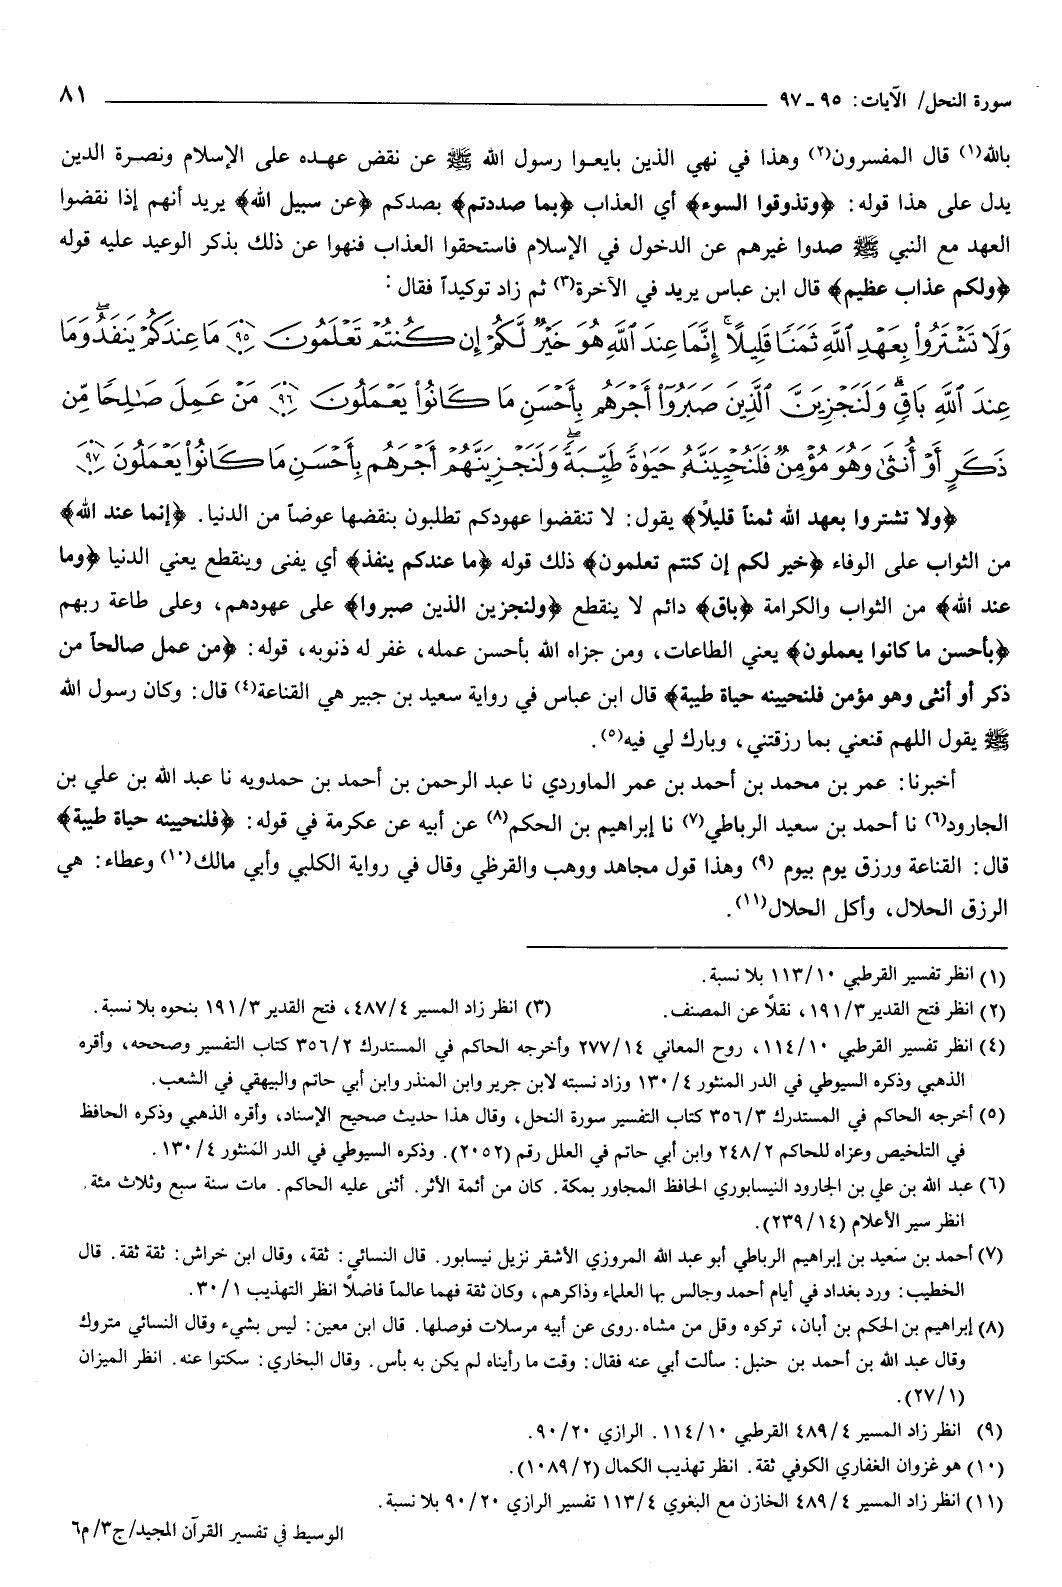 سورة النحل/ الآيات: ٩٥ - ٩٧ ٨١
بالله(١) قال المفسرون(٢) وهذا في نهي الذين بايعوا رسول الله ﷺ عن نقض عهده على الإسلام ونصرة الدين
يدل على هذا قوله: ﴿وتذوقوا السوء﴾ أي العذاب ﴿بما صددتم﴾ بصدكم ﴿عن سبيل الله﴾ يريد أنهم إذا نقضوا
العهد مع النبي ﷺ صدوا غيرهم عن الدخول في الإسلام فاستحقوا العذاب فنهوا عن ذلك بذكر الوعيد عليه قوله
﴿ولكم عذاب عظيم﴾ قال ابن عباس يريد في الآخرة(٣) ثم زاد توكيداً فقال:
وَلَا تَشْتَرُوا۟ بِعَهْدِ ٱللَّهِ ثَمَنًا قَلِيلًا ۚ إِنَّمَا عِندَ ٱللَّهِ هُوَ خَيْرٌ لَّكُمْ إِن كُنتُمْ تَعْلَمُونَ ۝٩٥ مَا عِندَكُمْ يَنفَدُ ۖ وَمَا
عِندَ ٱللَّهِ بَاقٍ ۗ وَلَنَجْزِيَنَّ ٱلَّذِينَ صَبَرُوٓا۟ أَجْرَهُم بِأَحْسَنِ مَا كَانُوا۟ يَعْمَلُونَ ۝٩٦ مَنْ عَمِلَ صَـٰلِحًا مِّن
ذَكَرٍ أَوْ أُنثَىٰ وَهُوَ مُؤْمِنٌ فَلَنُحْيِيَنَّهُۥ حَيَوٰةً طَيِّبَةً ۖ وَلَنَجْزِيَنَّهُمْ أَجْرَهُم بِأَحْسَنِ مَا كَانُوا۟ يَعْمَلُونَ ۝٩٧
﴿ولا تشتروا بعهد الله ثمناً قليلاً﴾ يقول: لا تنقضوا عهودكم تطلبون بنقضها عوضاً من الدنيا. ﴿إنما عند الله﴾
من الثواب على الوفاء ﴿خير لكم إن كنتم تعلمون﴾ ذلك قوله ﴿ما عندكم ينفذ﴾ أي يفنى وينقطع يعني الدنيا ﴿وما
عند الله﴾ من الثواب والكرامة ﴿باق﴾ دائم لا ينقطع ﴿ولنجزين الذين صبروا﴾ على عهودهم، وعلى طاعة ربهم
﴿بأحسن ما كانوا يعملون﴾ يعني الطاعات، ومن جزاه الله بأحسن عمله، غفر له ذنوبه، قوله: ﴿من عمل صالحاً من
ذكر أو أنثى وهو مؤمن فلنحيينه حياة طيبة﴾ قال ابن عباس في رواية سعيد بن جبير هي القناعة(٤) قال: وكان رسول الله
ﷺ يقول اللهم قنعني بما رزقتني، وبارك لي فيه(٥).
أخبرنا: عمر بن محمد بن أحمد بن عمر الماوردي نا عبد الرحمن بن أحمد بن حمدويه نا عبد الله بن علي بن
الجارود(٦) نا أحمد بن سعيد الرباطي(٧) نا إبراهيم بن الحكم(٨) عن أبيه عن عكرمة في قوله: ﴿فلنحيينه حياة طيبة﴾
قال: القناعة ورزق يوم بيوم (٩) وهذا قول مجاهد ووهب والقرظي وقال في رواية الكلبي وأبي مالك(١٠) وعطاء: هي
الرزق الحلال، وأكل الحلال(١١).
(١) انظر تفسير القرطبي ١٠/ ١١٣ بلا نسبة.
(٢) انظر فتح القدير ٣/ ١٩١، نقلاً عن المصنف. (٣) انظر زاد المسير ٤/ ٤٨٧، فتح القدير ٣/ ١٩١ بنحوه بلا نسبة.
(٤) انظر تفسير القرطبي ١٠/ ١١٤، روح المعاني ١٤/ ٢٧٧ وأخرجه الحاكم في المستدرك ٢/ ٣٥٦ كتاب التفسير وصححه، وأقره
الذهبي وذكره السيوطي في الدر المنثور ٤/ ١٣٠ وزاد نسبته لابن جرير وابن المنذر وابن أبي حاتم والبيهقي في الشعب.
(٥) أخرجه الحاكم في المستدرك ٣/ ٣٥٦ كتاب التفسير سورة النحل، وقال هذا حديث صحيح الإسناد، وأقره الذهبي وذكره الحافظ
في التلخيص وعزاه للحاكم ٢/ ٢٤٨ وابن أبي حاتم في العلل رقم (٢٠٥٢). وذكره السيوطي في الدر المنثور ٤/ ١٣٠.
(٦) عبد الله بن علي بن الجارود النيسابوري الحافظ المجاور بمكة. كان من أئمة الأثر. أثنى عليه الحاكم. مات سنة سبع وثلاث مئة.
انظر سير الأعلام (١٤/ ٢٣٩).
(٧) أحمد بن سعيد بن إبراهيم الرباطي أبو عبد الله المروزي الأشقر نزيل نيسابور. قال النسائي: ثقة، وقال ابن خراش: ثقة ثقة. قال
الخطيب: ورد بغداد في أيام أحمد وجالس بها العلماء وذاكرهم، وكان ثقة فهما عالماً فاضلاً انظر التهذيب ١/ ٣٠.
(٨) إبراهيم بن الحكم بن أبان، تركوه وقل من مشاه. روى عن أبيه مرسلات فوصلها. قال ابن معين: ليس بشيء وقال النسائي متروك
وقال عبد الله بن أحمد بن حنبل: سألت أبي عنه فقال: وقت ما رأيناه لم يكن به بأس. وقال البخاري: سكتوا عنه. انظر الميزان
(١/ ٢٧).
(٩) انظر زاد المسير ٤/ ٤٨٩ القرطبي ١٠/ ١١٤. الرازي ٢٠/ ٩٠.
(١٠) هو غزوان الغفاري الكوفي ثقة. انظر تهذيب الكمال (٢/ ١٠٨٩).
(١١) انظر زاد المسير ٤/ ٤٨٩ الخازن مع البغوي ٤/ ١١٣ تفسير الرازي ٢٠/ ٩٠ بلا نسبة.
الوسيط في تفسير القرآن المجيد/ ج٣/ م٦